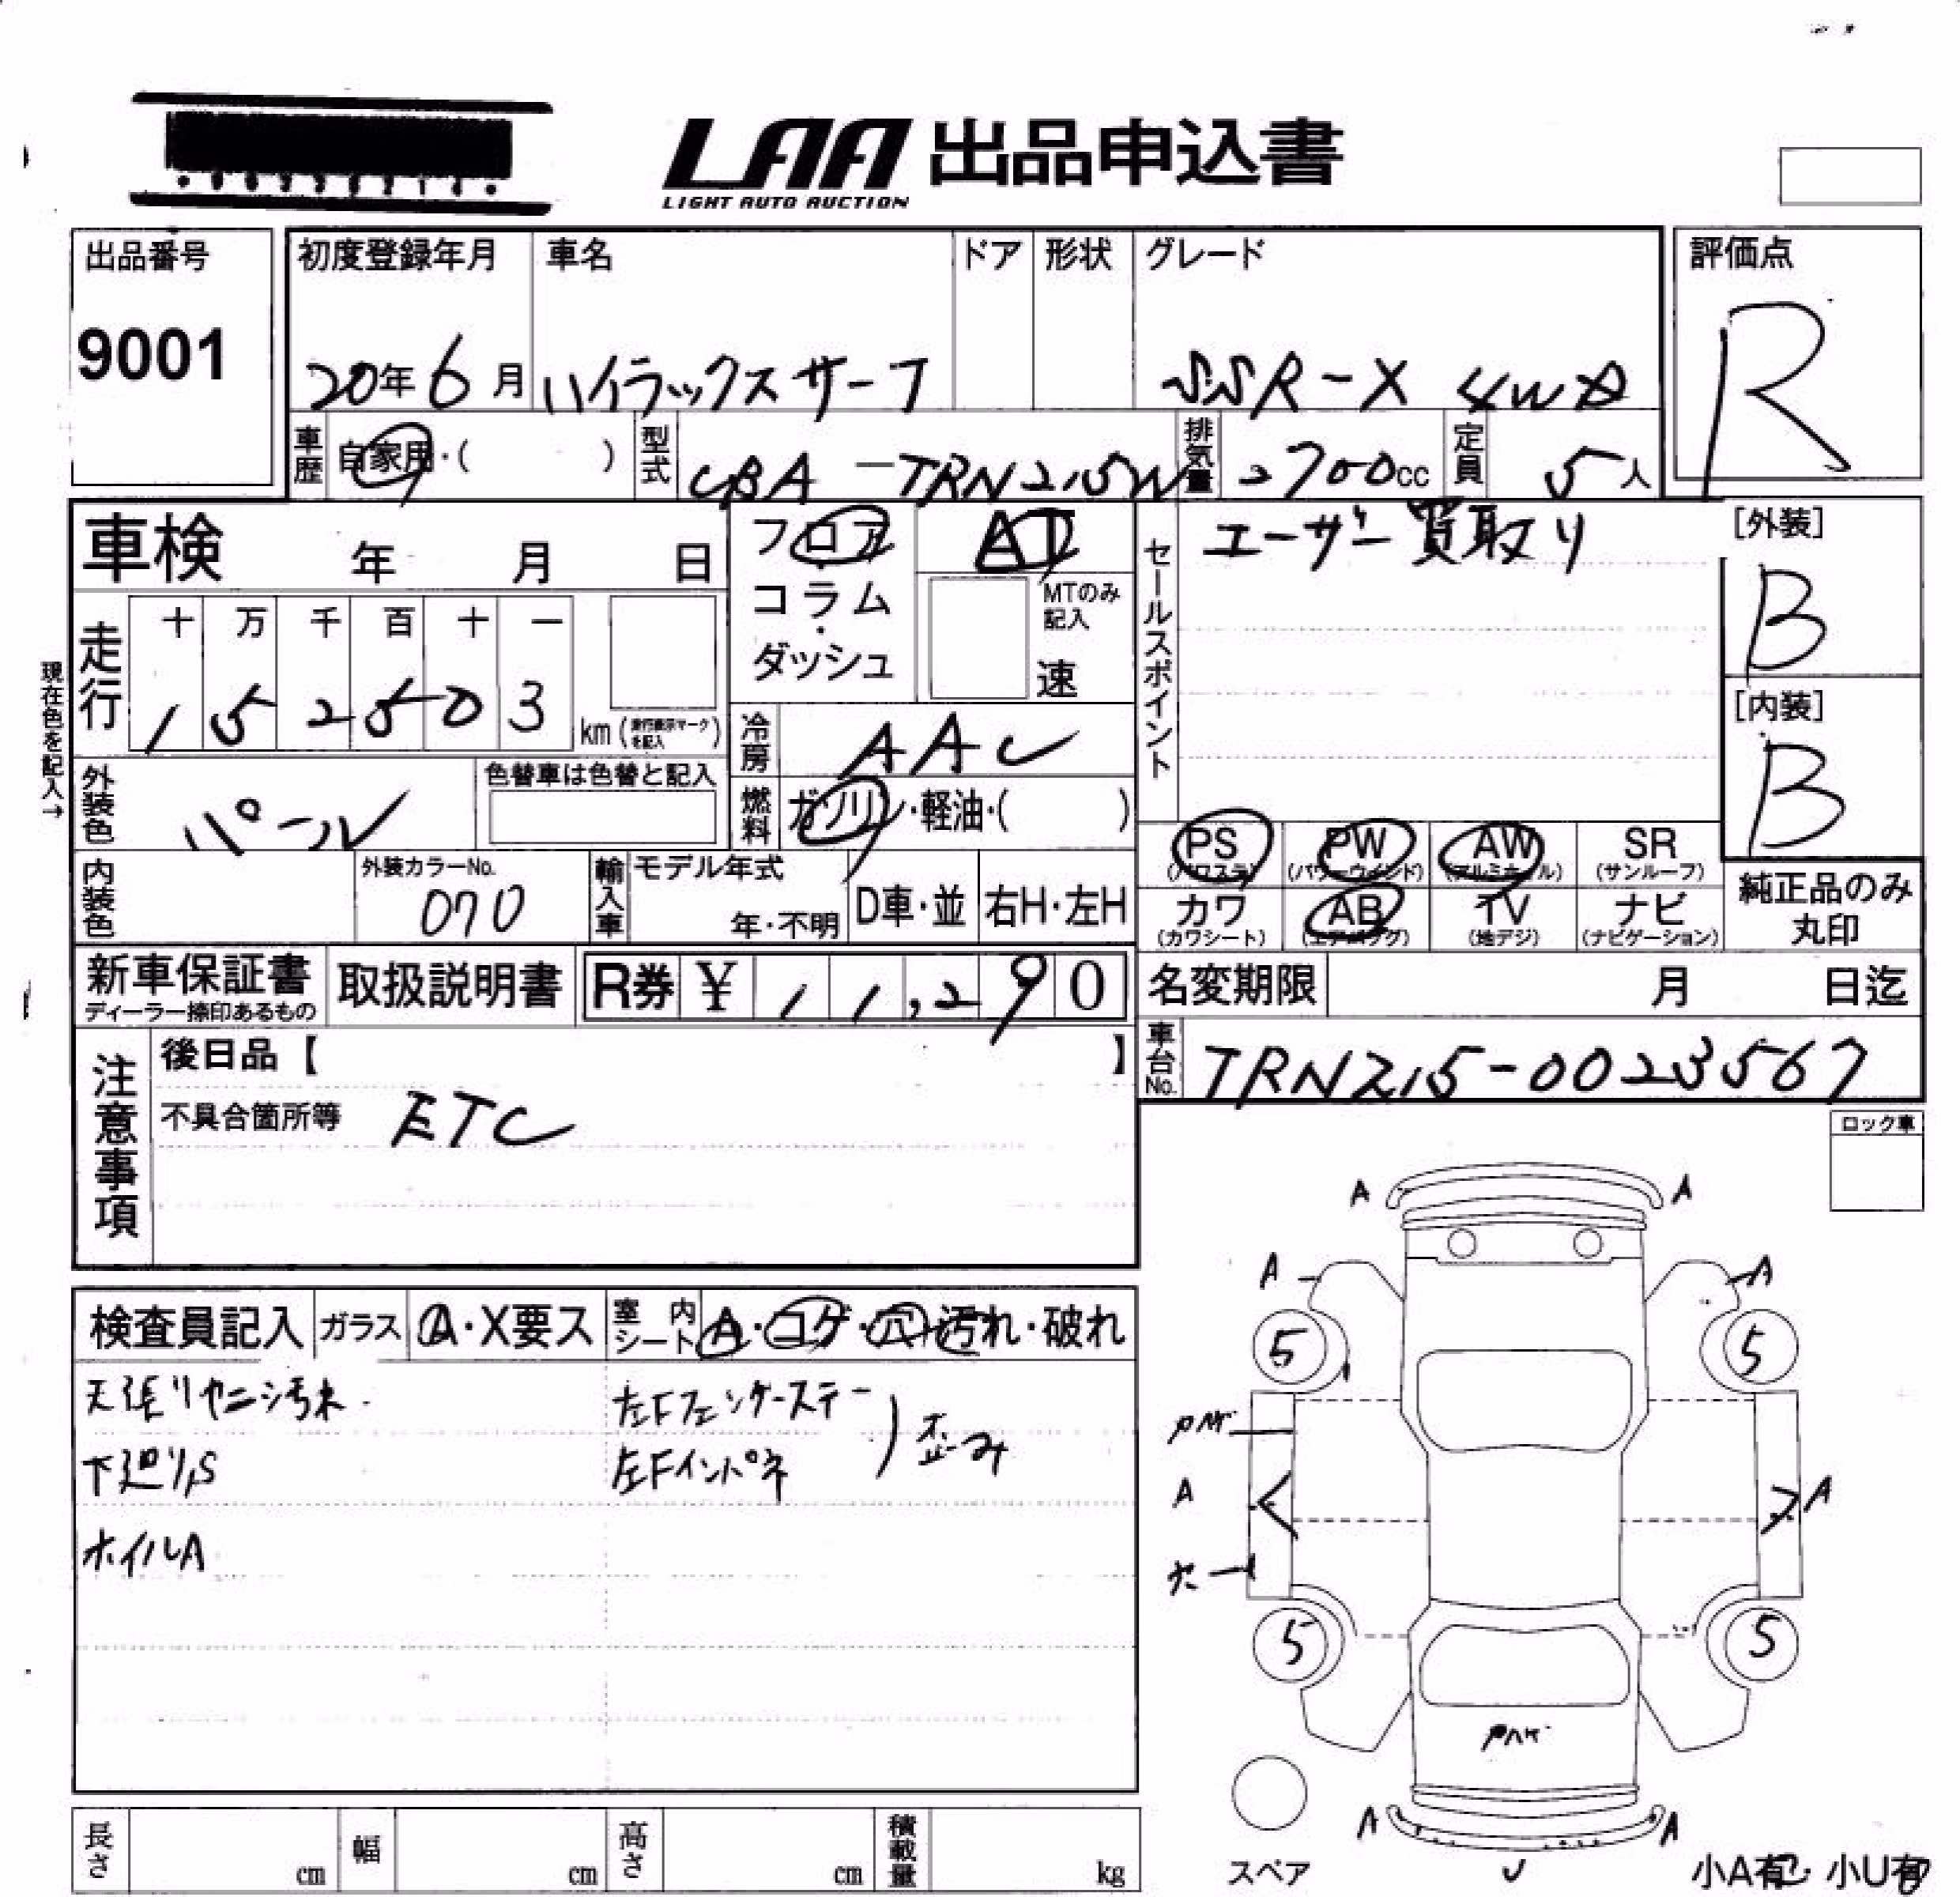 LAA 出品申込書
LIGHT AUTO AUCTION
出品番号
9001
初度登録年月
20年6月
車名
ハイラックスサーフ
ドア
形状
グレード
SSR-X 4WD
評価点
R
車歴
自家用・( )
型式
CBA-TRN215W
排気量
2700cc
定員
5人
車検 年 月 日
フロア
コラム・
ダッシュ
AT
MTのみ
記入
速
セールスポイント
ユーザー買取り
[外装]
B
[内装]
B
現在色を記入→
走行
十 万 千 百 十 一
1 5 2 5 0 3
km(走行表示マークを記入)
冷房
AAC
外装色
パール
色替車は色替と記入
燃料
ガソリン・軽油・( )
PS (パワステ)
PW (パワーウインド)
AW (アルミホイル)
SR (サンルーフ)
カワ (カワシート)
AB (エアバッグ)
TV (地デジ)
ナビ (ナビゲーション)
純正品のみ
丸印
内装色
外装カラーNo.
070
輸入車
モデル年式
年・不明
D車・並
右H・左H
新車保証書
ディーラー捺印あるもの
取扱説明書
R券 ¥ 11,290
名変期限 月 日迄
車台No.
TRN215-0023567
注意事項
後日品【 】
不具合箇所等 ETC
ロック車
検査員記入
ガラス
A・X要ス
室内シート
A・コゲ・穴・汚れ・破れ
天張りヤニシ汚れ
下廻りS
ホイルA
左Fフェンダーステー
左Fインパネ
歪み
A A
A A
5 5
A A
5 5
A A
スペア
小A有 小U有
長さ cm
幅 cm
高さ cm
積載量 kg